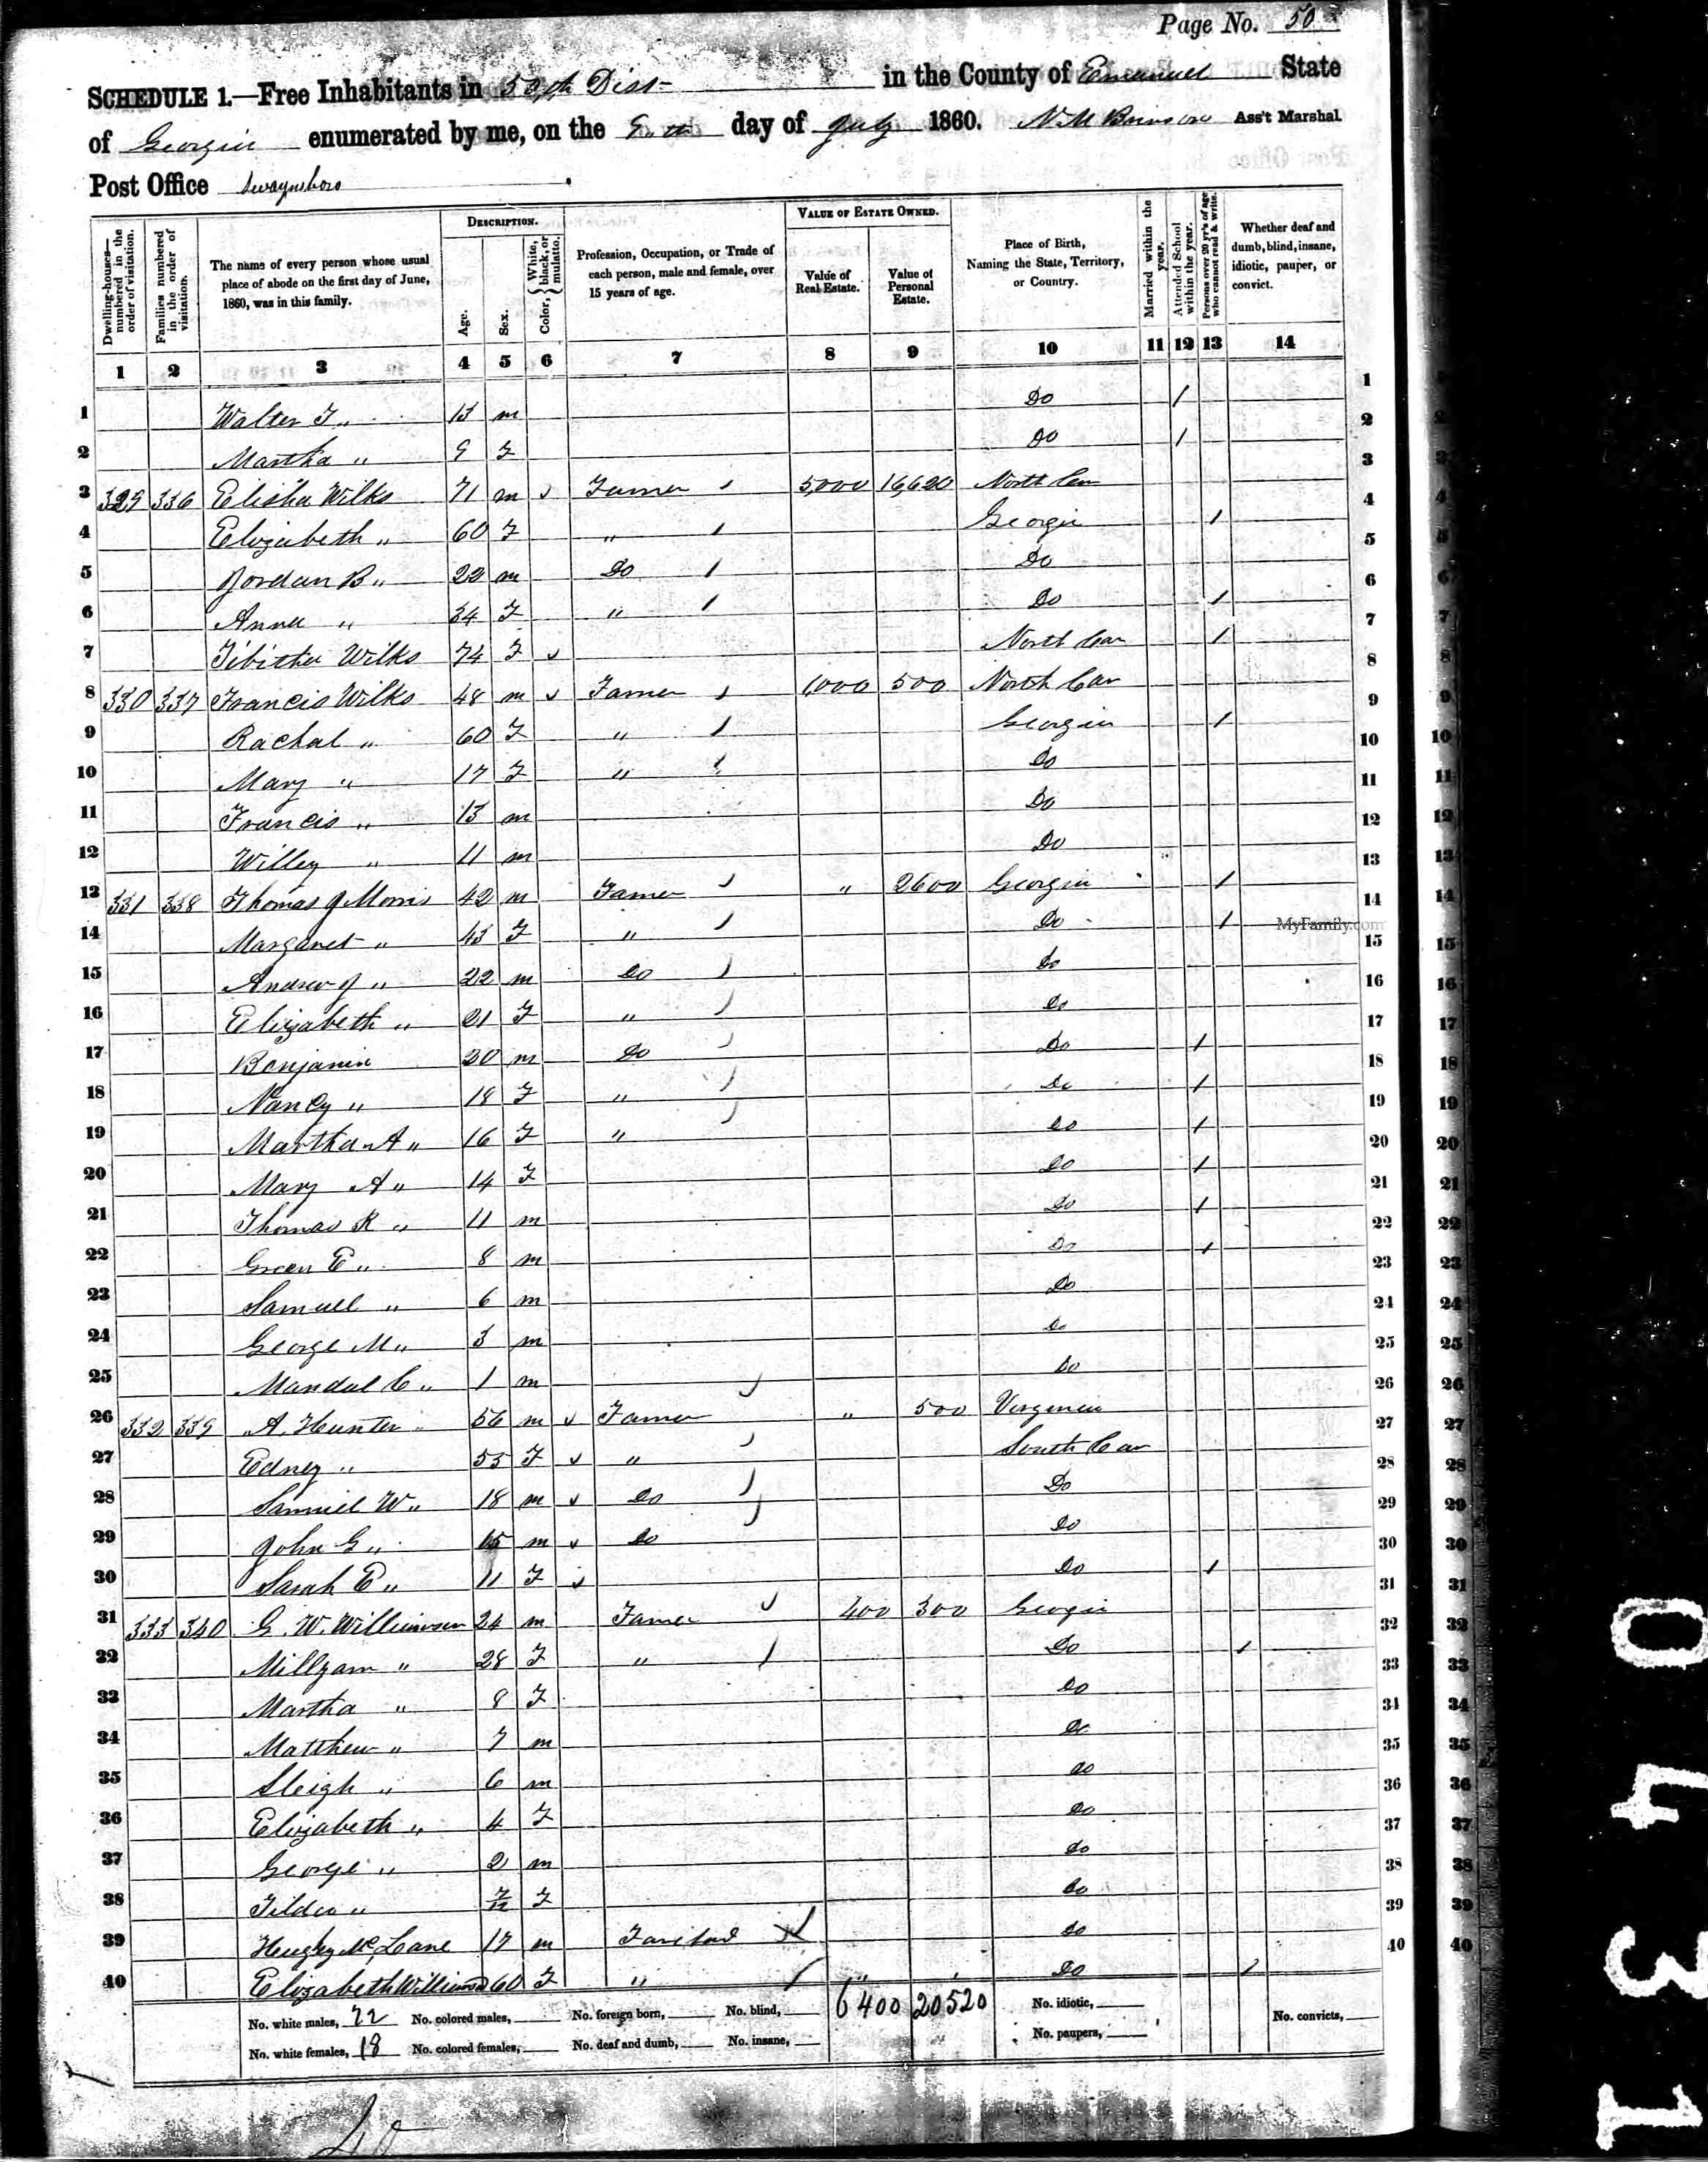 Page No. 50
SCHEDULE 1.—Free Inhabitants in 53,th Dist in the County of Emanuel State
of Georgia enumerated by me, on the 9th day of July 1860. N M Ass't Marshal
Post Office Swaynsboro
Dwelling-houses—numbered in the order of visitation. Families numbered in the order of visitation. The name of every person whose usual place of abode on the first day of June, 1860, was in this family. DESCRIPTION. Age. Sex. Color, { White, black, or mulatto. Profession, Occupation, or Trade of each person, male and female, over 15 years of age. VALUE OF ESTATE OWNED. Value of Real Estate. Value of Personal Estate. Place of Birth, Naming the State, Territory, or Country. Married within the year. Attended School within the year. Persons over 20 yr's of age who cannot read & write. Whether deaf and dumb, blind, insane, idiotic, pauper, or convict.
1 2 3 4 5 6 7 8 9 10 11 12 13 14
1 Walter J " 13 m Do 1 1
2 Martha " 9 F Do 1 2
3 329 336 Elisha Wilks 71 m Famer 5,000 16,620 North Car 3
4 Elizabeth " 60 F " Georgia 1 4
5 Jordan B " 22 m Do Do 5
6 Anna " 34 F " Do 1 6
7 Tibitha Wilks 74 F North Car 1 7
8 330 337 Francis Wilks 48 m Famer 1,000 500 North Car 8
9 Rachal " 60 F " Georgia 1 9
10 Mary " 17 F " Do 10
11 Francis " 13 m Do 11
12 Willey " 11 m Do 12
13 331 338 Thomas J Morris 42 m Famer " 2600 Georgia 1 13
14 Margaret " 43 F " Do 1 14
MyFamily.com
15 Andrew J " 22 m Do Do 15
16 Elizabeth " 21 F " Do 16
17 Benjamin 20 m Do Do 1 17
18 Nancy " 18 F " Do 1 18
19 Martha A " 16 F " Do 1 19
20 Mary A " 14 F Do 1 20
21 Thomas R " 11 m Do 1 21
22 Green E " 8 m Do 1 22
23 Samuel " 6 m Do 23
24 George M " 3 m Do 24
25 Mandal C " 1 m Do 25
26 332 339 A. Hunter " 56 m Famer " 500 Virginia 26
27 Edney " 55 F " South Car 27
28 Samuel W " 18 m Do Do 28
29 John G " 15 m Do Do 29
30 Sarah E " 11 F Do 1 30
31 333 340 G. W. Williamson 24 m Famer 400 300 Georgia 31
32 Millyam " 28 F " Do 1 32
33 Martha " 8 F Do 33
34 Matthew " 7 m Do 34
35 Sleigh " 6 m Do 35
36 Elizabeth " 4 F Do 36
37 George " 2 m Do 37
38 " 7/12 F Do 38
39 McLane 17 m Do 39
40 Elizabeth Williamson 60 F " " Do 1 40
No. white males, 22 No. colored males, No. foreign born, No. blind, 6400 20520 No. idiotic, No. convicts,
No. white females, 18 No. colored females, No. deaf and dumb, No. insane, No. paupers,
40
0431